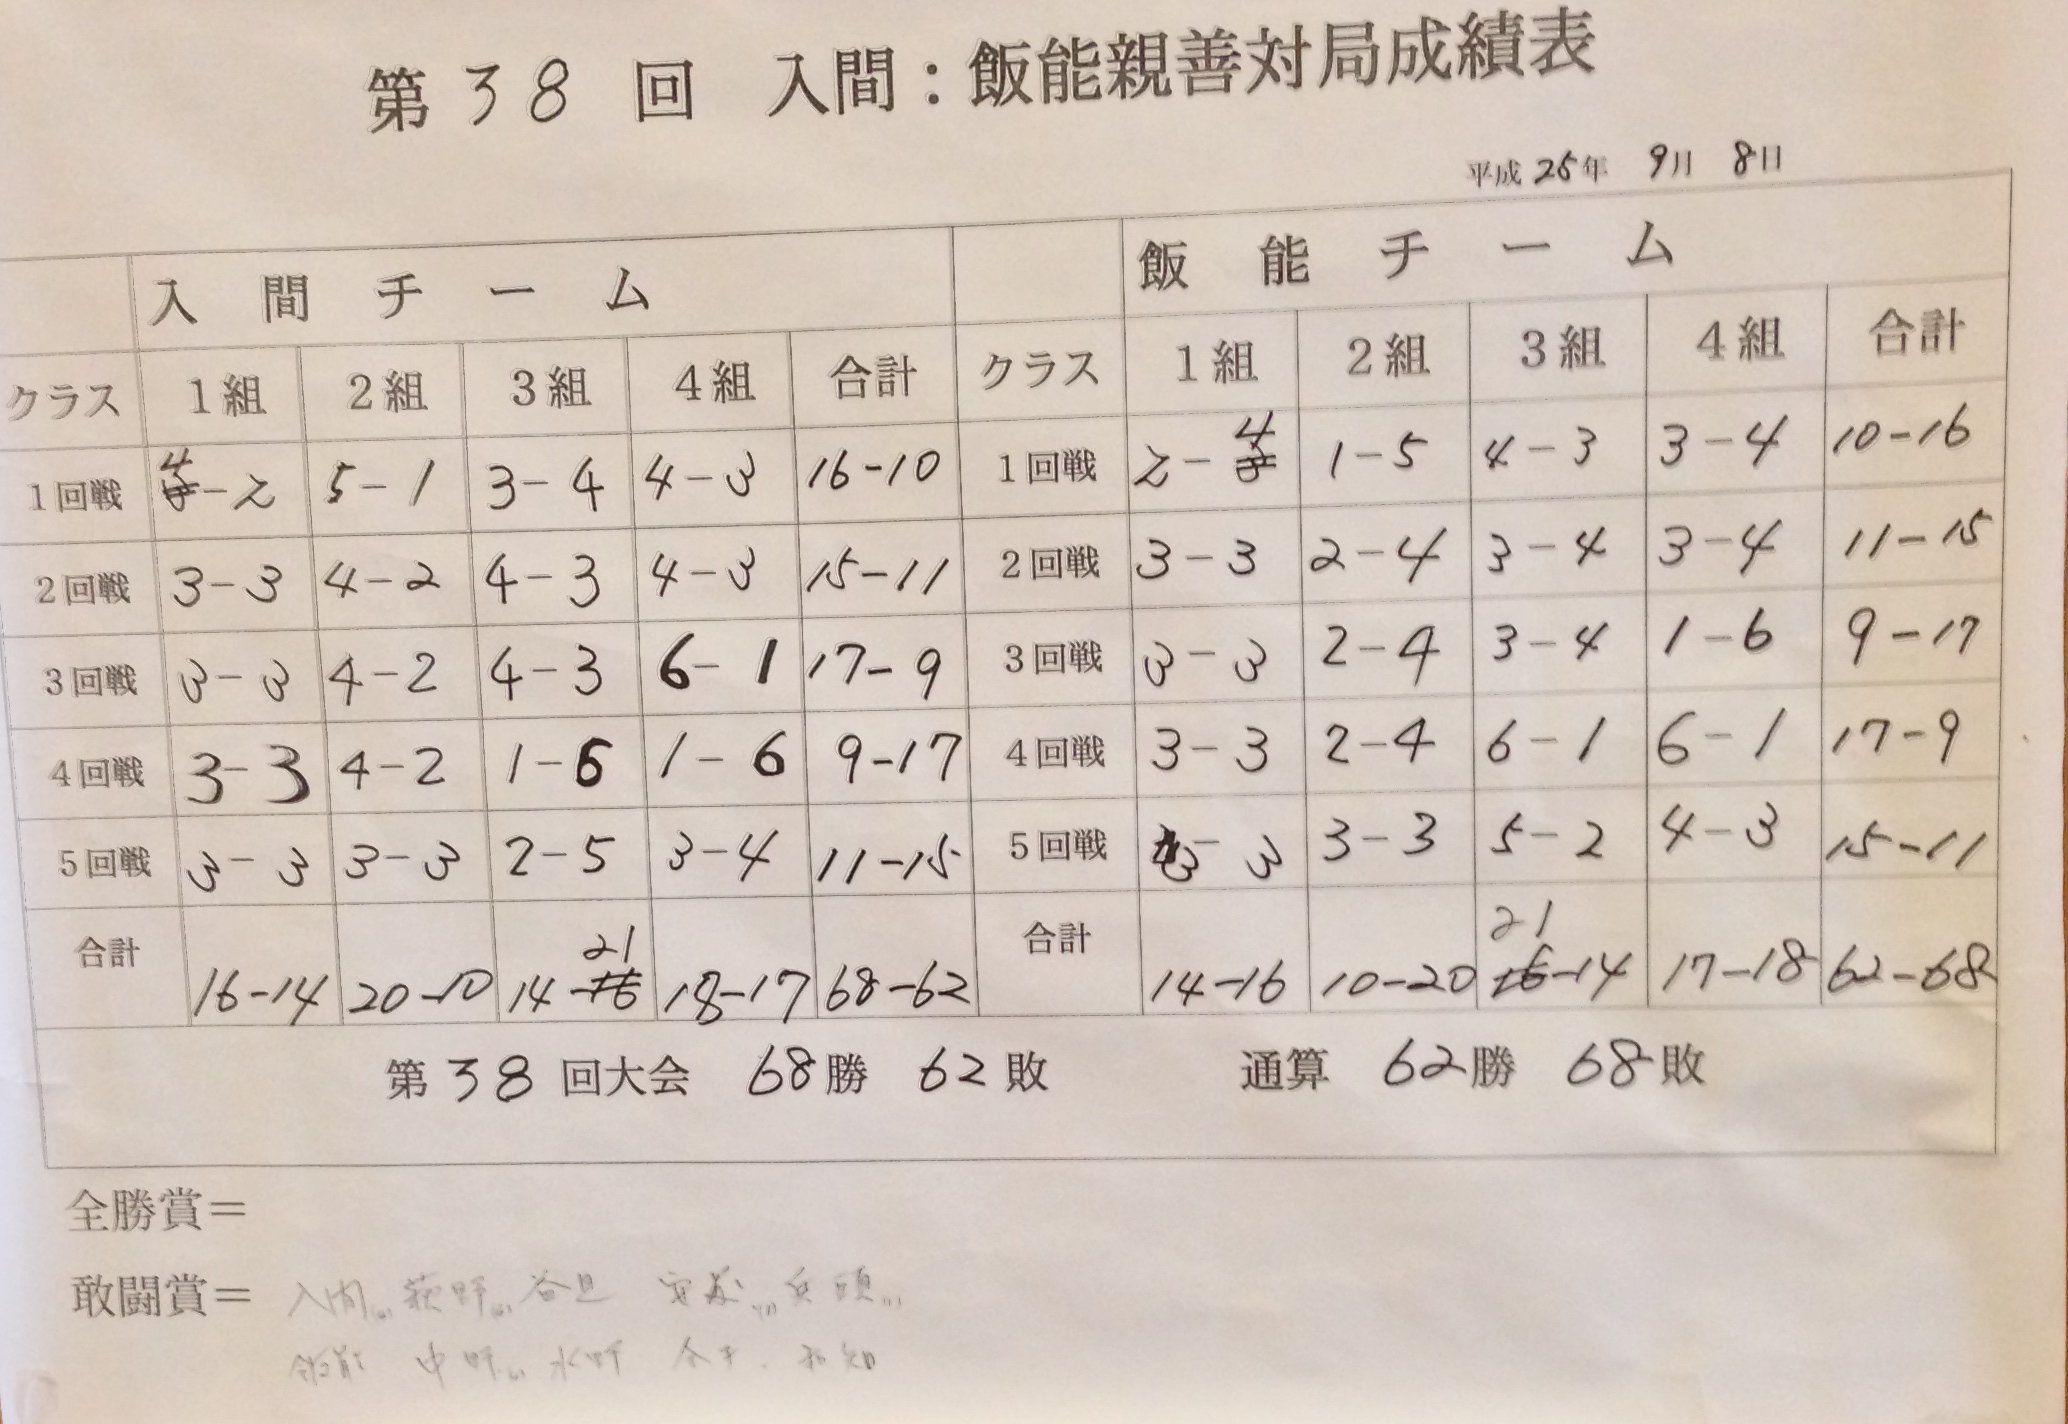 第 38 回 入間：飯能親善対局成績表
平成 25年 9月 8日
入間チーム 飯能チーム
クラス 1組 2組 3組 4組 合計 クラス 1組 2組 3組 4組 合計
1回戦 4-2 5-1 3-4 4-3 16-10 1回戦 2-4 1-5 4-3 3-4 10-16
2回戦 3-3 4-2 4-3 4-3 15-11 2回戦 3-3 2-4 3-4 3-4 11-15
3回戦 3-3 4-2 4-3 6-1 17-9 3回戦 3-3 2-4 3-4 1-6 9-17
4回戦 3-3 4-2 1-6 1-6 9-17 4回戦 3-3 2-4 6-1 6-1 17-9
5回戦 3-3 3-3 2-5 3-4 11-15 5回戦 3-3 3-3 5-2 4-3 15-11
合計 16-14 20-10 14-21 18-17 68-62 合計 14-16 10-20 21-14 17-18 62-68
第 38 回大会 68勝 62敗 通算 62勝 68敗
全勝賞＝
敢闘賞＝ 入間 荻野 谷 兵頭
飯能 中野 水野 和知